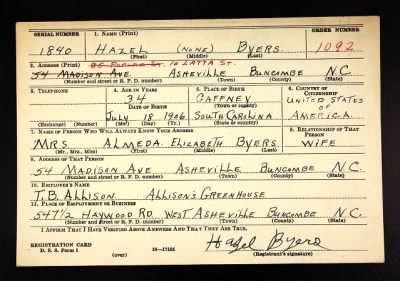 SERIAL NUMBER 1. NAME (Print) ORDER NUMBER
1840 HAZEL (NONE) BYERS 1092
(First) (Middle) (Last)
2. ADDRESS (Print) 85 POPLAR ST. 10 LATTA ST.
54 MADISON AVE. ASHEVILLE BUNCOMBE N.C.
(Number and street or R. F. D. number) (Town) (County) (State)
3. TELEPHONE 4. AGE IN YEARS 5. PLACE OF BIRTH 6. COUNTRY OF CITIZENSHIP
34 GAFFNEY UNITED STATES
DATE OF BIRTH (Town or county) OF
JULY 18 1906 SOUTH CAROLINA AMERICA
(Exchange) (Number) (Mo.) (Day) (Yr.) (State or country)
7. NAME OF PERSON WHO WILL ALWAYS KNOW YOUR ADDRESS 8. RELATIONSHIP OF THAT PERSON
MRS. ALMEDA ELIZABETH BYERS WIFE
(Mr., Mrs., Miss) (First) (Middle) (Last)
9. ADDRESS OF THAT PERSON
54 MADISON AVE ASHEVILLE BUNCOMBE N.C.
(Number and street or R. F. D. number) (Town) (County) (State)
10. EMPLOYER'S NAME
T.B. ALLISON ALLISON'S GREENHOUSE
11. PLACE OF EMPLOYMENT OR BUSINESS
547 1/2 HAYWOOD RD. WEST ASHEVILLE BUNCOMBE N.C.
(Number and street or R. F. D. number) (Town) (County) (State)
I AFFIRM THAT I HAVE VERIFIED ABOVE ANSWERS AND THAT THEY ARE TRUE.
REGISTRATION CARD
D. S. S. Form 1 16—17105 Hazel Byers
(over) (Registrant's signature)